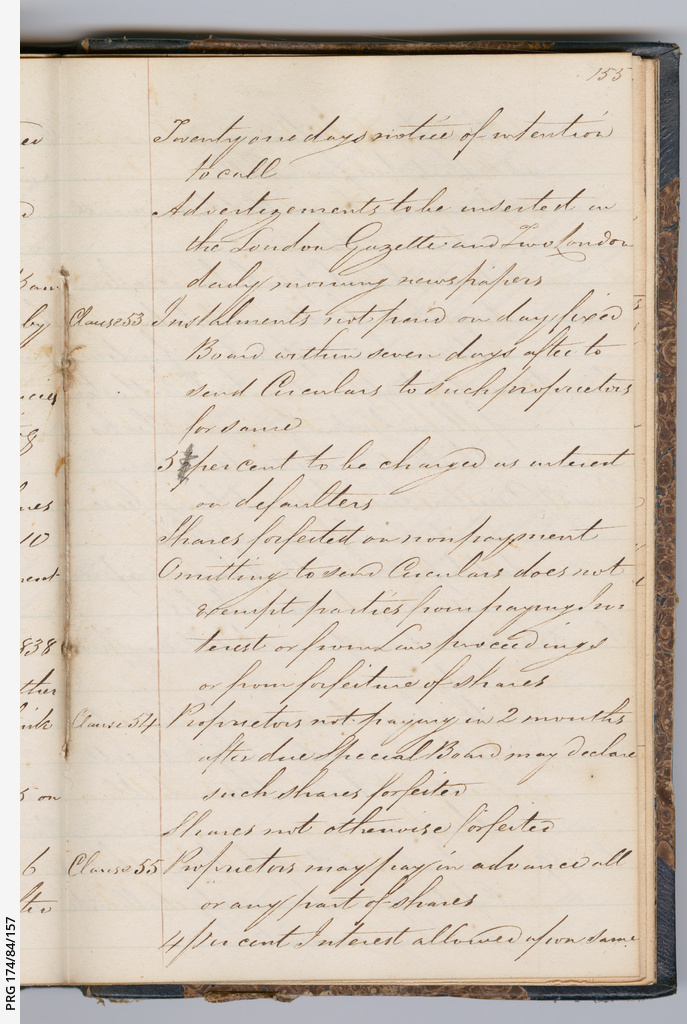 155
Twenty one days notice of intention
to call
Advertizements to be inserted in
the London Gazette and Two London
daily morning newspapers
Clause 53 Instalments not paid on day fixed
Board within seven days after to
send Circulars to such proprietors
for same
5 per cent to be charged as interest
on defaulters
Shares forfeited on nonpayment
Omitting to send Circulars does not
exempt parties from paying In-
terest or from Law proceedings
or from forfeiture of shares
Clause 54 Proprietors not paying in 2 months
after due Special Board may declare
such shares forfeited
Shares not otherwise forfeited
Clause 55 Proprietors may pay in advance all
or any part of shares
4 per cent Interest allowed upon same
by
10
838
5 on
6
PRG 174/84/157